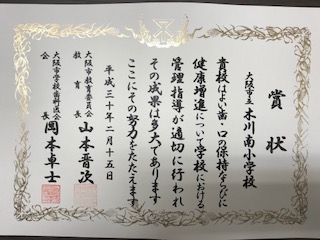 賞状
大阪市立 木川南小学校
貴校はよい歯・口の保持ならびに
健康増進について学校における
管理指導が適切に行われ
その成果は多大であります
ここにその努力をたたえます
平成三十年二月十五日
大阪市教育委員会
教育長 山本晋次
大阪市学校歯科医会
会長 岡本卓士